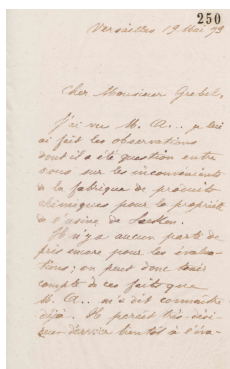 250
Versailles 19 Mai 93
Cher Monsieur Grebel,
J'ai vu M. A... je lui
ai fait les observations
dont il a été question entre
nous sur les inconvénients
de la fabrique de produits
chimiques pour la propriété
de l'usine de
Il n'y a aucun parti de
pris encore pour les évalua-
tions; on peut donc tenir
compte de ces faits que
M. A... m'a dit connaître
déjà. Il paraît très dési-
reux d'arriver bientôt à l'éva-